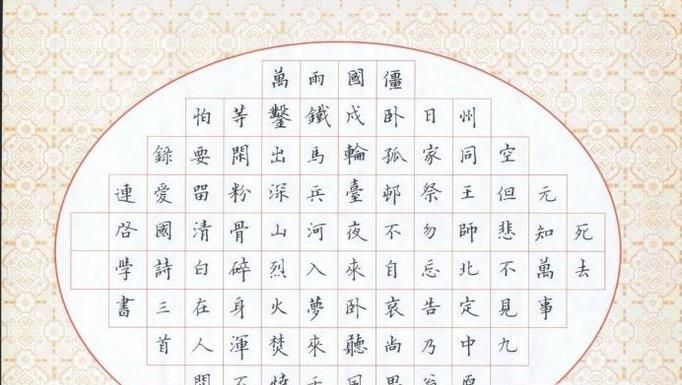 死去
元知萬事
空但悲不見九
州同王師北定中原
日家祭勿忘告乃翁
僵卧孤邨不自哀尚思
國戍輪臺夜來卧聽風
雨鐵馬冰河入夢來千
萬鑿出深山烈火焚燒
等閑粉骨碎身渾不
怕要留清白在人間
錄愛國詩三首
連啓學書